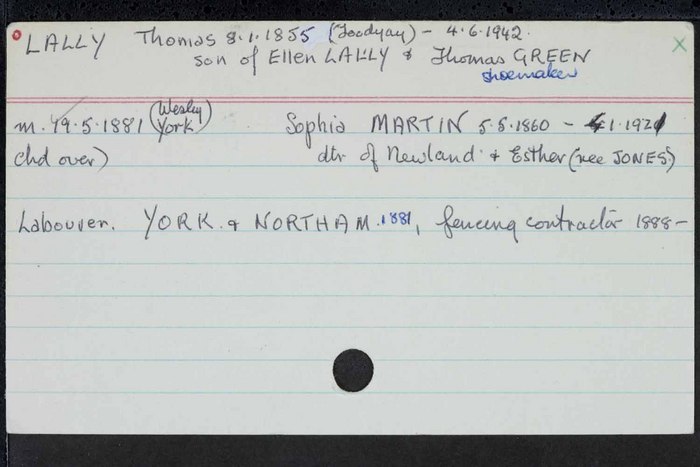 LALLY Thomas 8.1.1855 (Toodyay) - 4.6.1942.
son of Ellen LALLY & Thomas GREEN
shoemaker
m. 19.5.1881 (Wesley York) Sophia MARTIN 5.5.1860 - 1.1921
chd over) dtr of Newland + Esther (nee JONES)
Labourer. YORK. & NORTHAM. 1881, fencing contractor 1888-